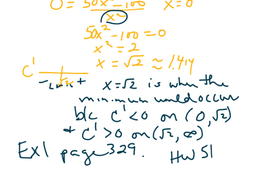 0 = 50x² - 100 / x² x = 0
50x² - 100 = 0
x² = 2
x = √2 ≈ 1.414
C' - √2 + x = √2 is when the
minimum would occur
b/c C' < 0 on (0, √2)
+ C' > 0 on (√2, ∞)
Ex1 page 329. HW 51